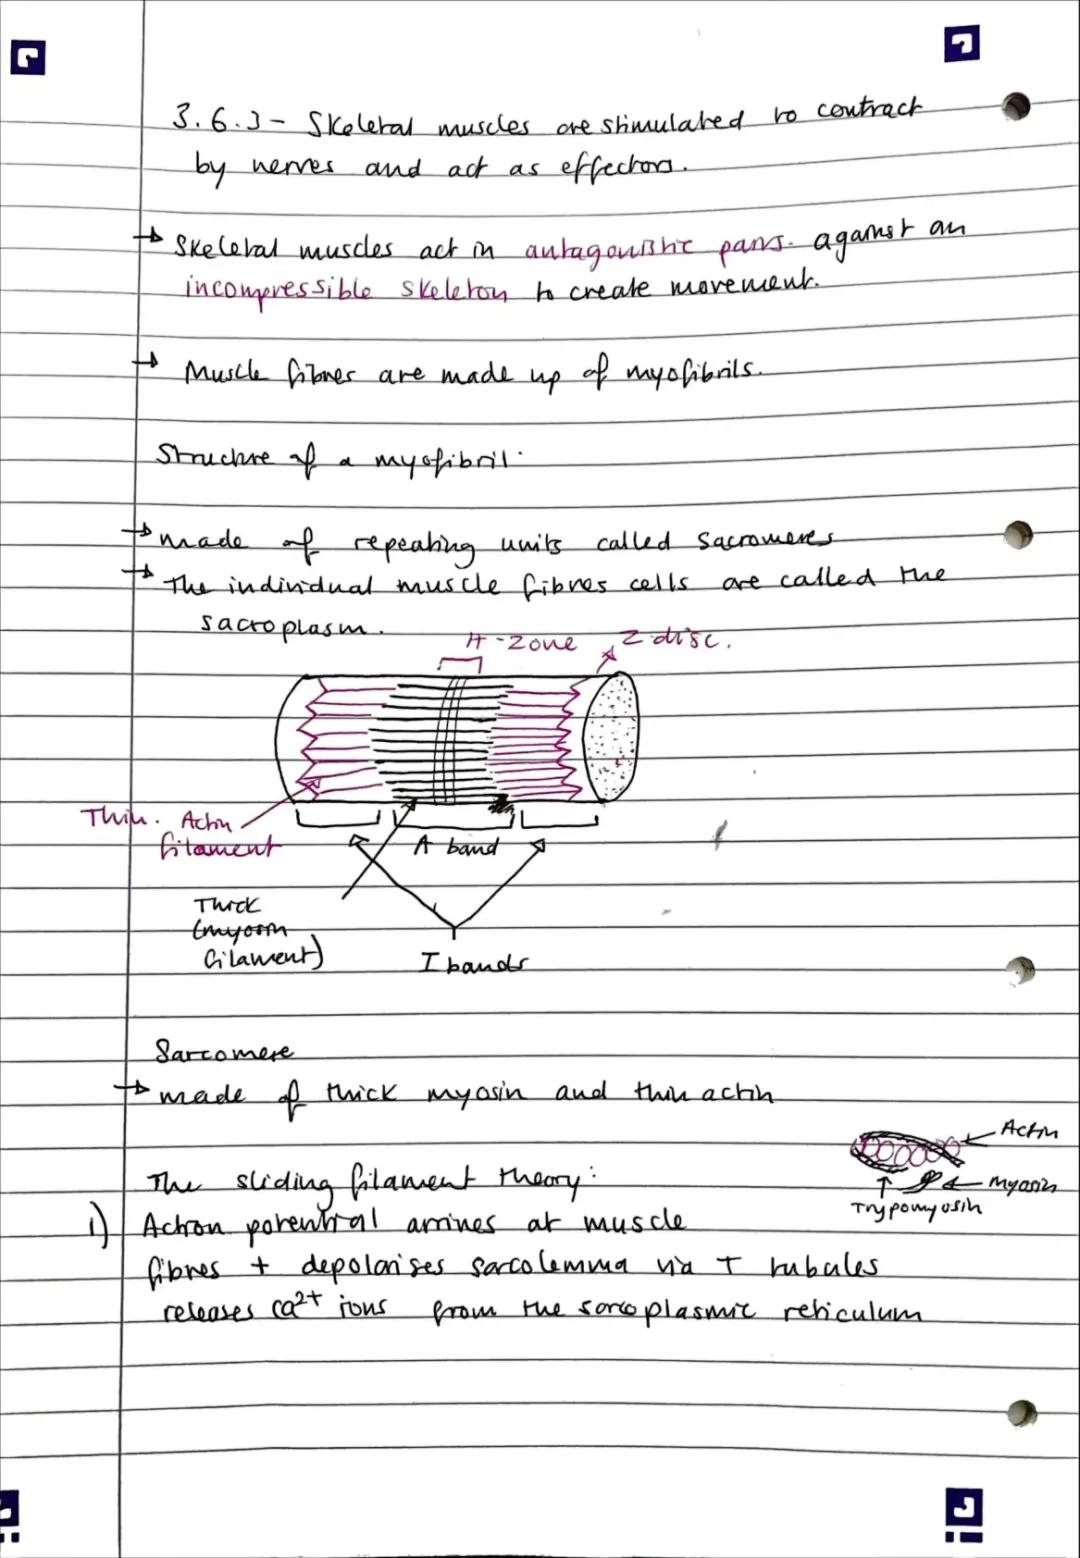 3.6.3- Skeletal muscles are stimulated to contract
by nerves and act as effectors.
→ Skeletal muscles act in antagonistic pairs. against an
incompressible skeleton to create movement.
→ Muscle fibres are made up of myofibrils.
Structure of a myofibril:
→ made of repeating units called Sacromeres
→ The individual muscle fibres cells are called the
sacroplasm.
H-zone
Z disc.
Thin. Actin
filament
A band
Thick
(myosin
filament)
I bands
Sarcomere
→ made of thick myosin and thin actin
Actin
myosin
Trypomyosin
The sliding filament theory:
1) Action potential arrives at muscle
fibres + depolarises sarcolemma via T tubules
releases Ca²⁺ ions from the sarcoplasmic reticulum